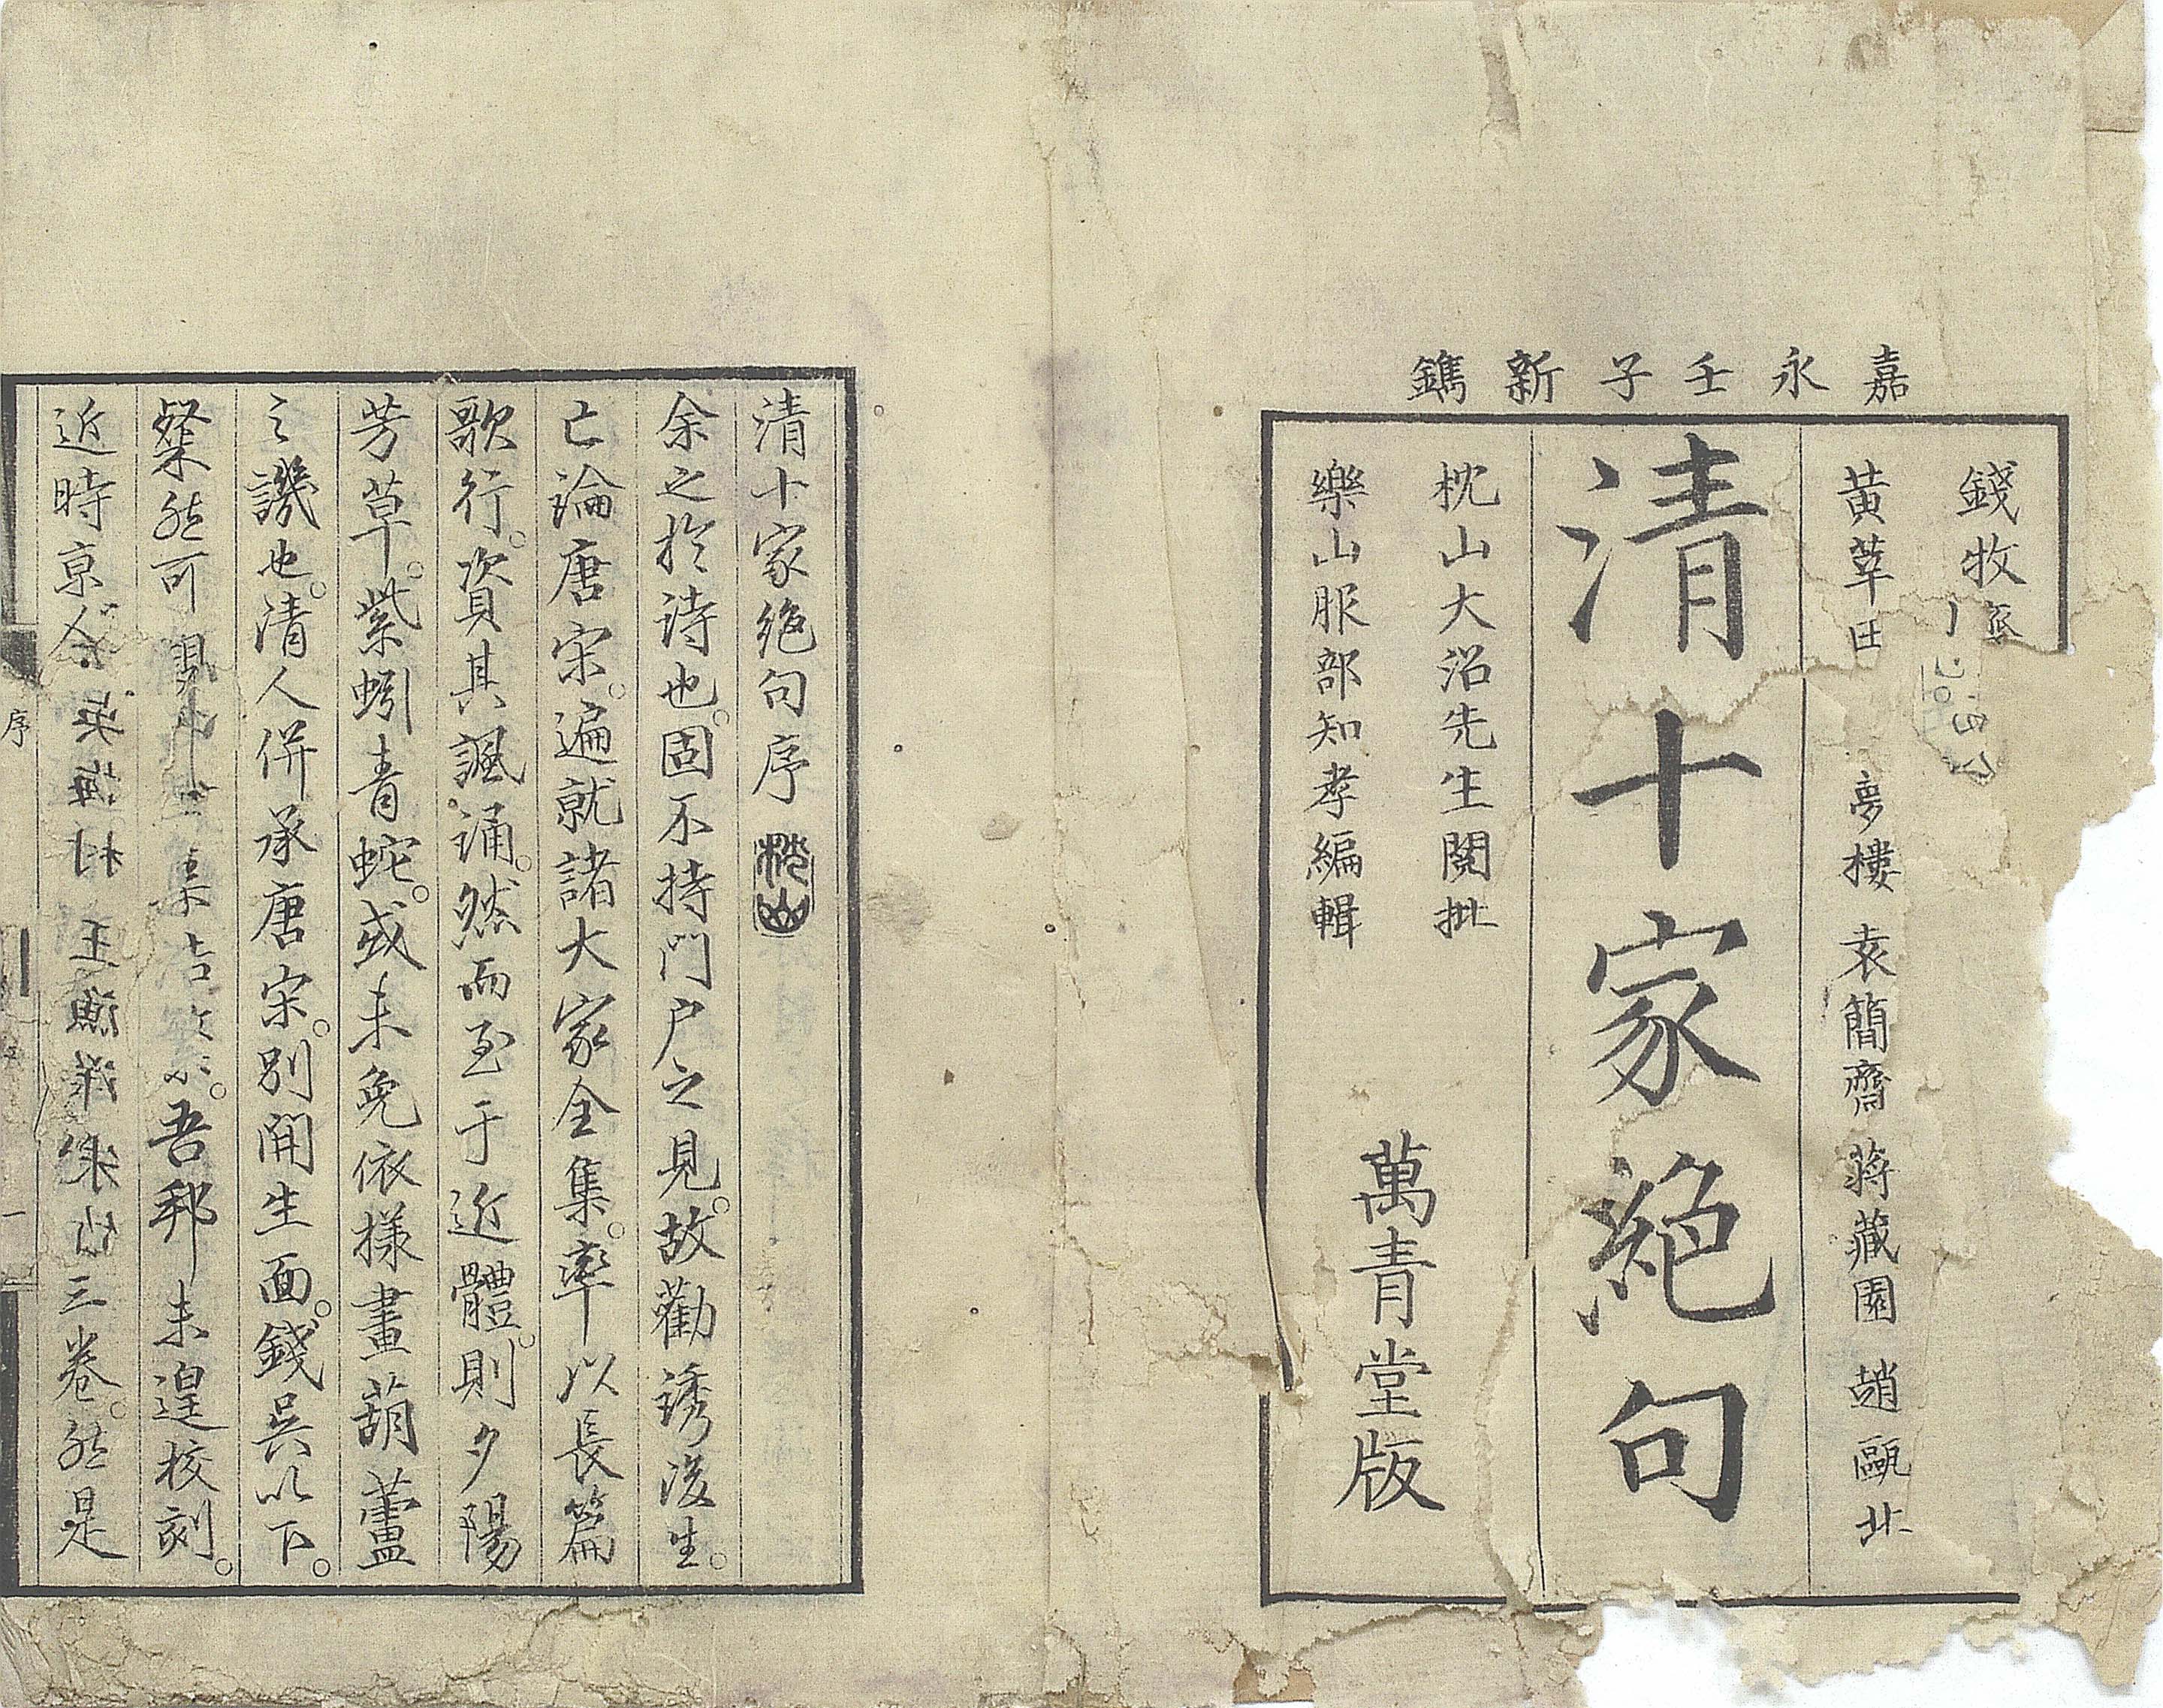 嘉永壬子新鐫
錢牧
黃莘田 夢樓 袁簡齋 蔣藏園 趙甌北
清十家絕句
枕山大沼先生閱批
樂山服部知孝編輯
萬青堂版
清十家絕句序 枕山
余之於詩也。固不持門戶之見。故勸誘後生。
亡論唐宋。遍就諸大家全集。率以長篇
歌行。資其諷誦。然而至于近體。則夕陽
芳草。紫蚓青蛇。或未免依樣畫葫蘆
之譏也。清人併承唐宋。別開生面。錢吳以下。
粲然可 吾邦未遑校刻。
近時京人 吳梅村 王漁洋 朱竹 三卷。然是
序
一